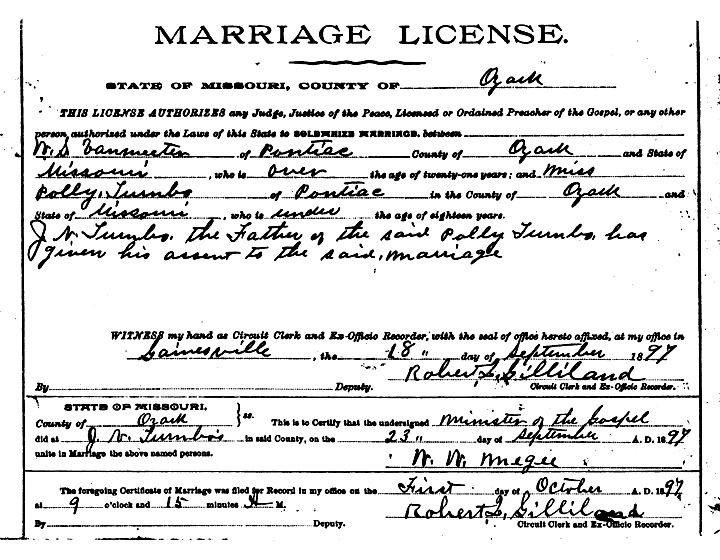 MARRIAGE LICENSE.
STATE OF MISSOURI, COUNTY OF Ozark
THIS LICENSE AUTHORIZES any Judge, Justice of the Peace, Licensed or Ordained Preacher of the Gospel, or any other
person authorized under the Laws of this State to SOLEMNIZE MARRIAGE, between
W. S. Vanmeeter of Pontiac County of Ozark and State of
Missouri, who is over the age of twenty-one years; and Miss
Polly Turnbo of Pontiac in the County of Ozark and
State of Missouri, who is under the age of eighteen years.
J N. Turnbo. the Father of the said Polly Turnbo, has
given his assent to the said, marriage
WITNESS my hand as Circuit Clerk and Ex-Officio Recorder, with the seal of office hereto affixed, at my office in
Gainesville, the 18 " day of September 1897
Robert L, Gilliland
By Deputy. Circuit Clerk and Ex-Officio Recorder.
STATE OF MISSOURI,
County of Ozark } ss. This is to Certify that the undersigned Minister of the Gospel
did at J. N. Turnbo's in said County, on the 23 " day of September A. D. 1897
unite in Marriage the above named persons.
W. W. Megee
The foregoing Certificate of Marriage was filed for Record in my office on the First day of October A. D. 1897,
at 9 o'clock and 15 minutes A M.
Robert L, Gilliland
By Deputy. Circuit Clerk and Ex-Officio Recorder.